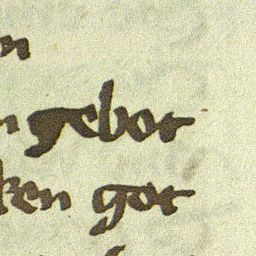 n
n gebot
ken got